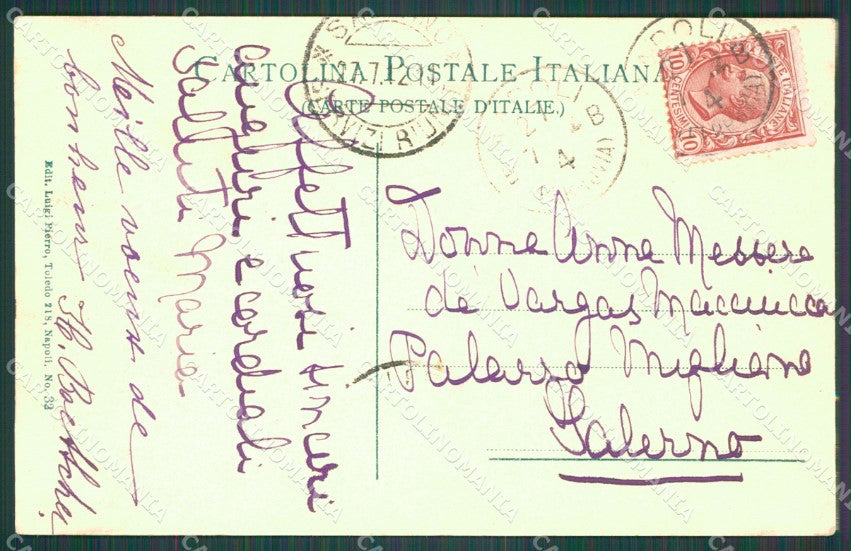 CARTOLINA POSTALE ITALIANA
(CARTE POSTALE D'ITALIE.)
Affettuosi sinceri
auguri e cordiali
saluti Maria
Mille voeux de
bonheur H.
Donna Anna Messere
de Vargas Macciucca
Palazzo Migliano
Salerno
Edit. Luigi Pierro, Toledo 218, Napoli. No. 32
10
10
CARTOLINOMANIA